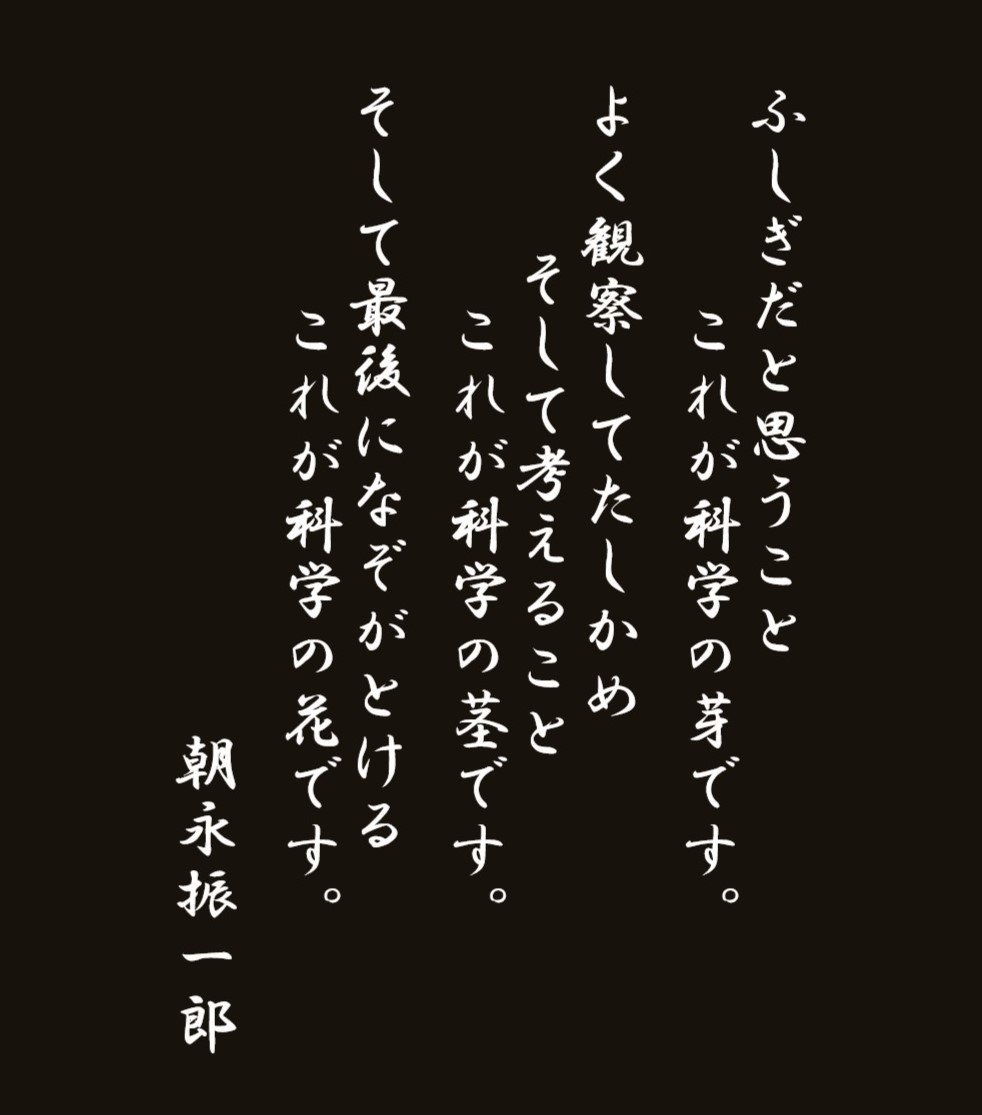 ふしぎだと思うこと
これが科学の芽です。
よく観察してたしかめ
そして考えること
これが科学の茎です。
そして最後になぞがとける
これが科学の花です。
朝永振一郎